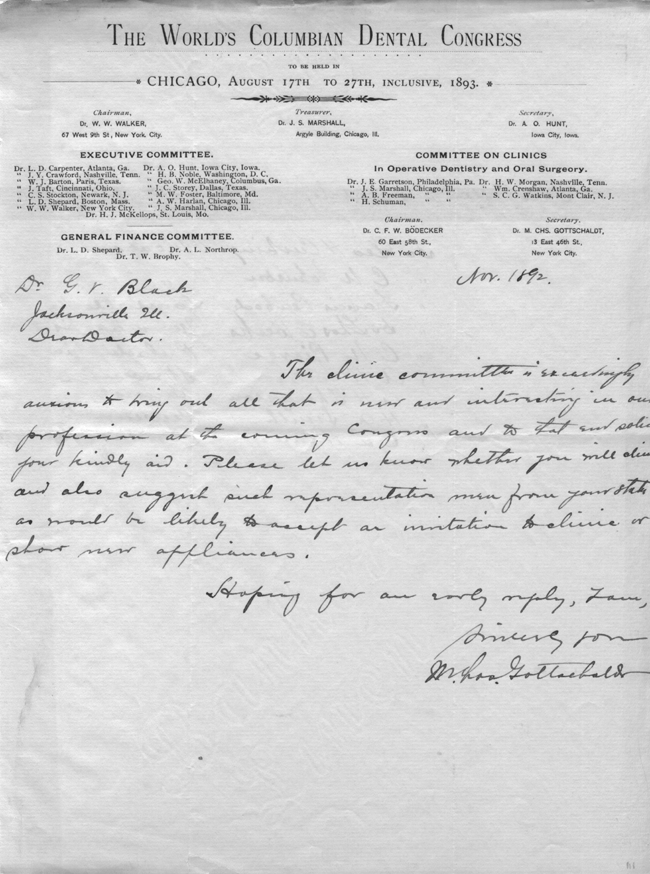 THE WORLD'S COLUMBIAN DENTAL CONGRESS
TO BE HELD IN
CHICAGO, AUGUST 17TH TO 27TH, INCLUSIVE, 1893.
Chairman, Treasurer, Secretary,
Dr. W. W. WALKER, Dr. J. S. MARSHALL, Dr. A. O. HUNT,
67 West 9th St., New York City. Argyle Building, Chicago, Ill. Iowa City, Iowa.
EXECUTIVE COMMITTEE.
Dr. L. D. Carpenter, Atlanta, Ga. Dr. A. O. Hunt, Iowa City, Iowa.
" J. Y. Crawford, Nashville, Tenn. " H. B. Noble, Washington, D. C.
" W. J. Barton, Paris, Texas. " Geo. W. McElhaney, Columbus, Ga.
" J. Taft, Cincinnati, Ohio. " J. C. Storey, Dallas, Texas.
" C. S. Stockton, Newark, N. J. " M. W. Foster, Baltimore, Md.
" L. D. Shepard, Boston, Mass. " A. W. Harlan, Chicago, Ill.
" W. W. Walker, New York City. " J. S. Marshall, Chicago, Ill.
Dr. H. J. McKellops, St. Louis, Mo.
GENERAL FINANCE COMMITTEE.
Dr. L. D. Shepard, Dr. A. L. Northrop.
Dr. T. W. Brophy.
COMMITTEE ON CLINICS
In Operative Dentistry and Oral Surgeory.
Dr. J. E. Garretson, Philadelphia, Pa. Dr. H. W. Morgan, Nashville, Tenn.
" J. S. Marshall, Chicago, Ill. " Wm. Crenshaw, Atlanta, Ga.
" A. B. Freeman, " " " S. C. G. Watkins, Mont Clair, N. J.
" H. Schuman, " "
Chairman. Secretary.
Dr. C. F. W. BÖDECKER Dr. M. CHS. GOTTSCHALDT,
60 East 58th St., 13 East 46th St.,
New York City. New York City.
Nov. 1892.
Dr G. V. Black
Jacksonville Ill.
Dear Doctor.
The clinic committee is exceedingly
anxious to bring out all that is new and interesting in our
profession at the coming Congress and to that end solicit
your kindly aid. Please let us know whether you will clinic
and also suggest such representative men from your State
as would be likely to accept an invitation to clinic or
show new appliances.
Hoping for an early reply, I am,
Sincerely yours
M. Chas. Gottschaldt